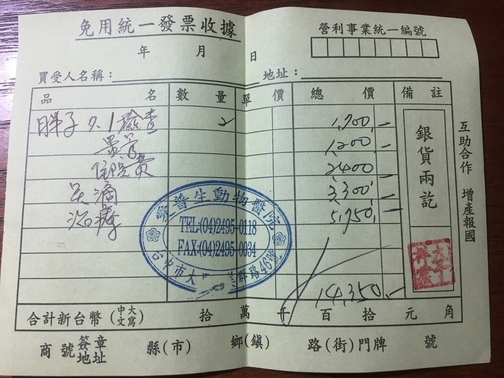 免用統一發票收據
營利事業統一編號
年 月 日
買受人名稱: 地址:
品 名 數 量 單 價 總 價 備 註
胖子 9.1檢查 2 1,700,-
1,200,-
住院費 2400
點滴 3,300,-
治療 5,750,-
銀貨兩訖
互助合作 增產報國
普生動物醫院
TEL:(04)2495-0118
FAX:(04)2495-0034
14,350,-
合計新台幣(中文大寫) 拾 萬 仟 百 拾 元 角
商號 簽章 地址 縣(市) 鄉(鎮) 路(街)門牌 號